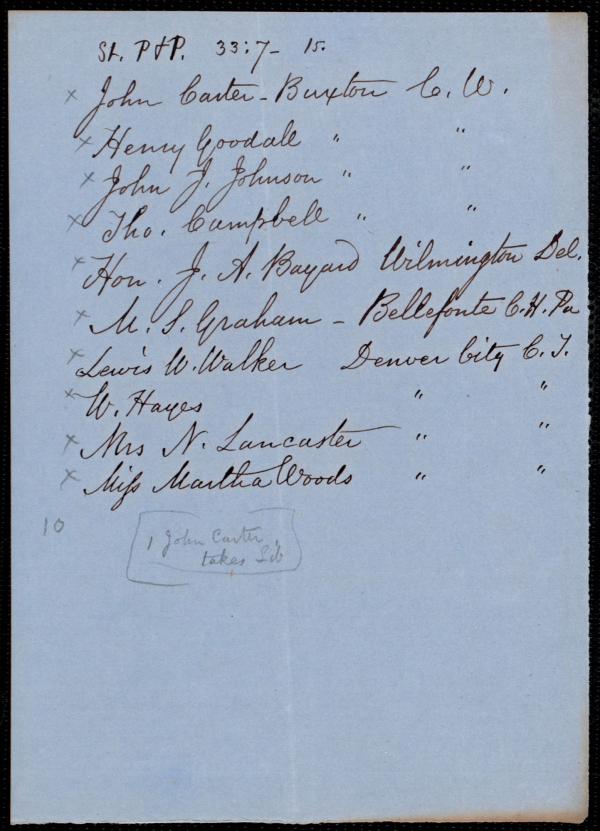 St. P & P. 33:7- 15.
x John Carter - Buxton C. W.
x Henry Goodall " "
x John J. Johnson " "
x Tho. Campbell " "
x Hon. J. A. Bayard Wilmington Del.
x M. S. Graham - Bellefonte C. H. Pa
x Lewis W. Walker Denver City C. T.
x W. Hayes " "
x Mrs N. Lancaster " "
x Miss Martha Woods " "
10
1 John Carter,
takes Lib